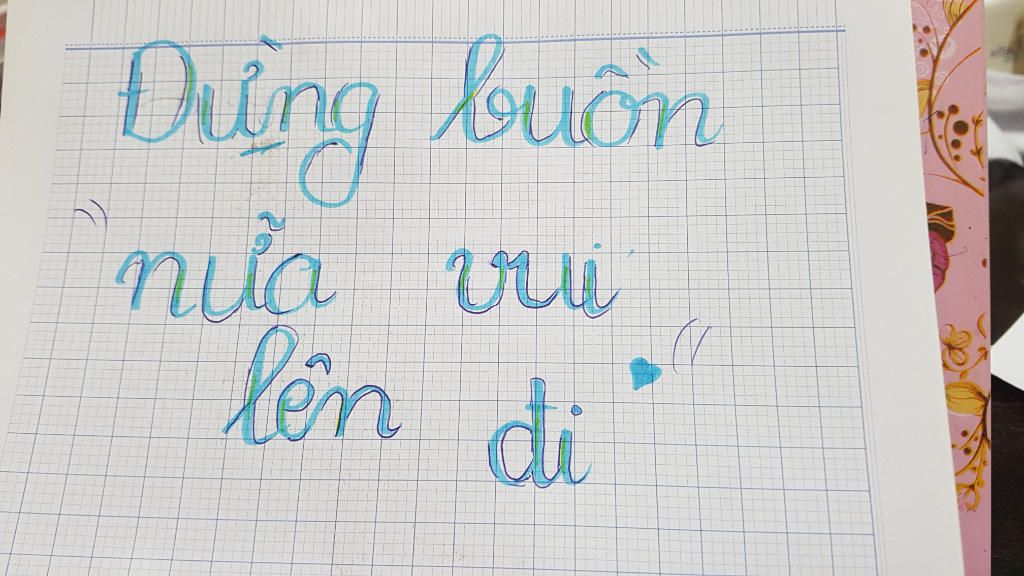 Đừng buồn
nữa vui
lên đi